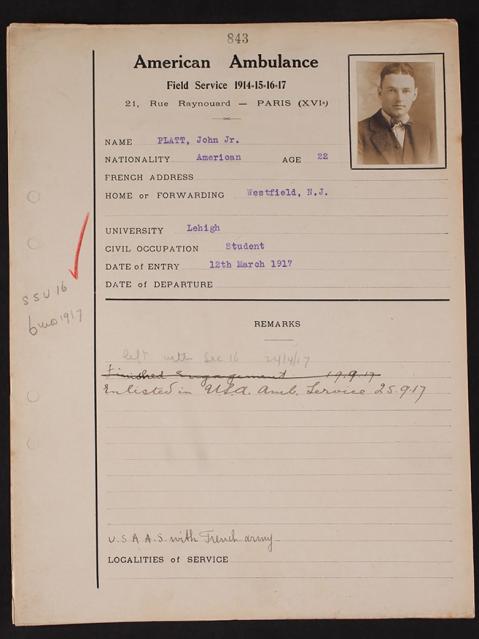 843
American Ambulance
Field Service 1914-15-16-17
21, Rue Raynouard — PARIS (XVIe)
NAME PLATT, John Jr.
NATIONALITY American AGE 22
FRENCH ADDRESS
HOME or FORWARDING Westfield, N.J.
UNIVERSITY Lehigh
CIVIL OCCUPATION Student
DATE of ENTRY 12th March 1917
DATE of DEPARTURE
SSU 16
6 mo 1917
REMARKS
left with Sec 16 24/4/17
Finished Engagement 19.9.17
Enlisted in USA. Amb. Service 25.9.17
U.S.A.A.S. with French army
LOCALITIES of SERVICE